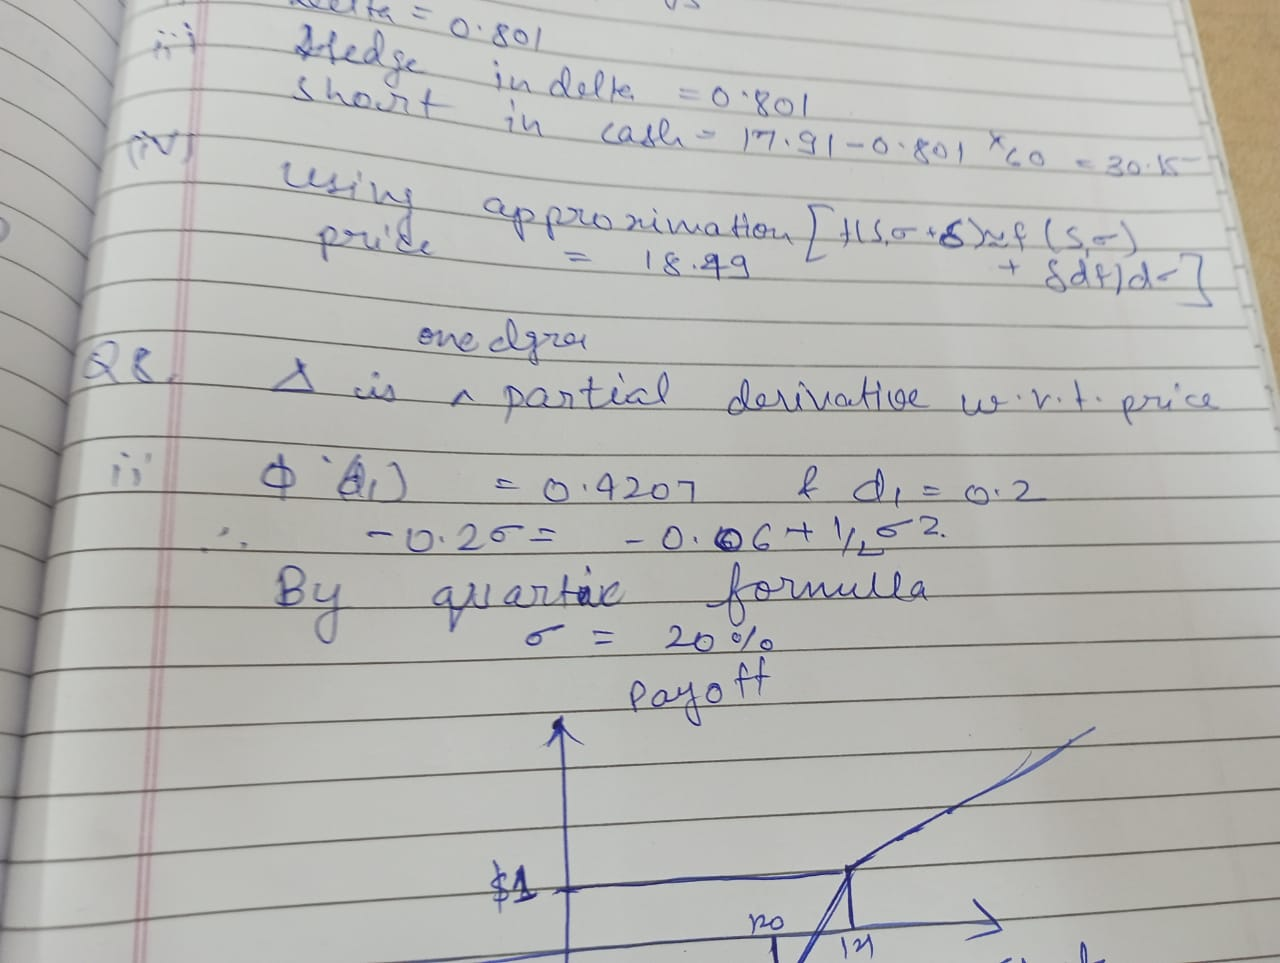 Delta = 0.801
iii) Hedge in delta = 0.801
short in cash = 17.91 - 0.801 × 60 = 30.15
(iv) using approximation [f(S,σ+δ)≈f(S,σ)
+ δdf/dσ]
price = 18.49
one dgra
Q8. Δ is ^ partial derivative w.r.t. price
ii Φ(d₁) = 0.4207 & d₁ = 0.2
∴ -0.2σ = -0.06 + 1/2 σ2.
By quartic formulla
σ = 20%
Payoff
$1
120
121